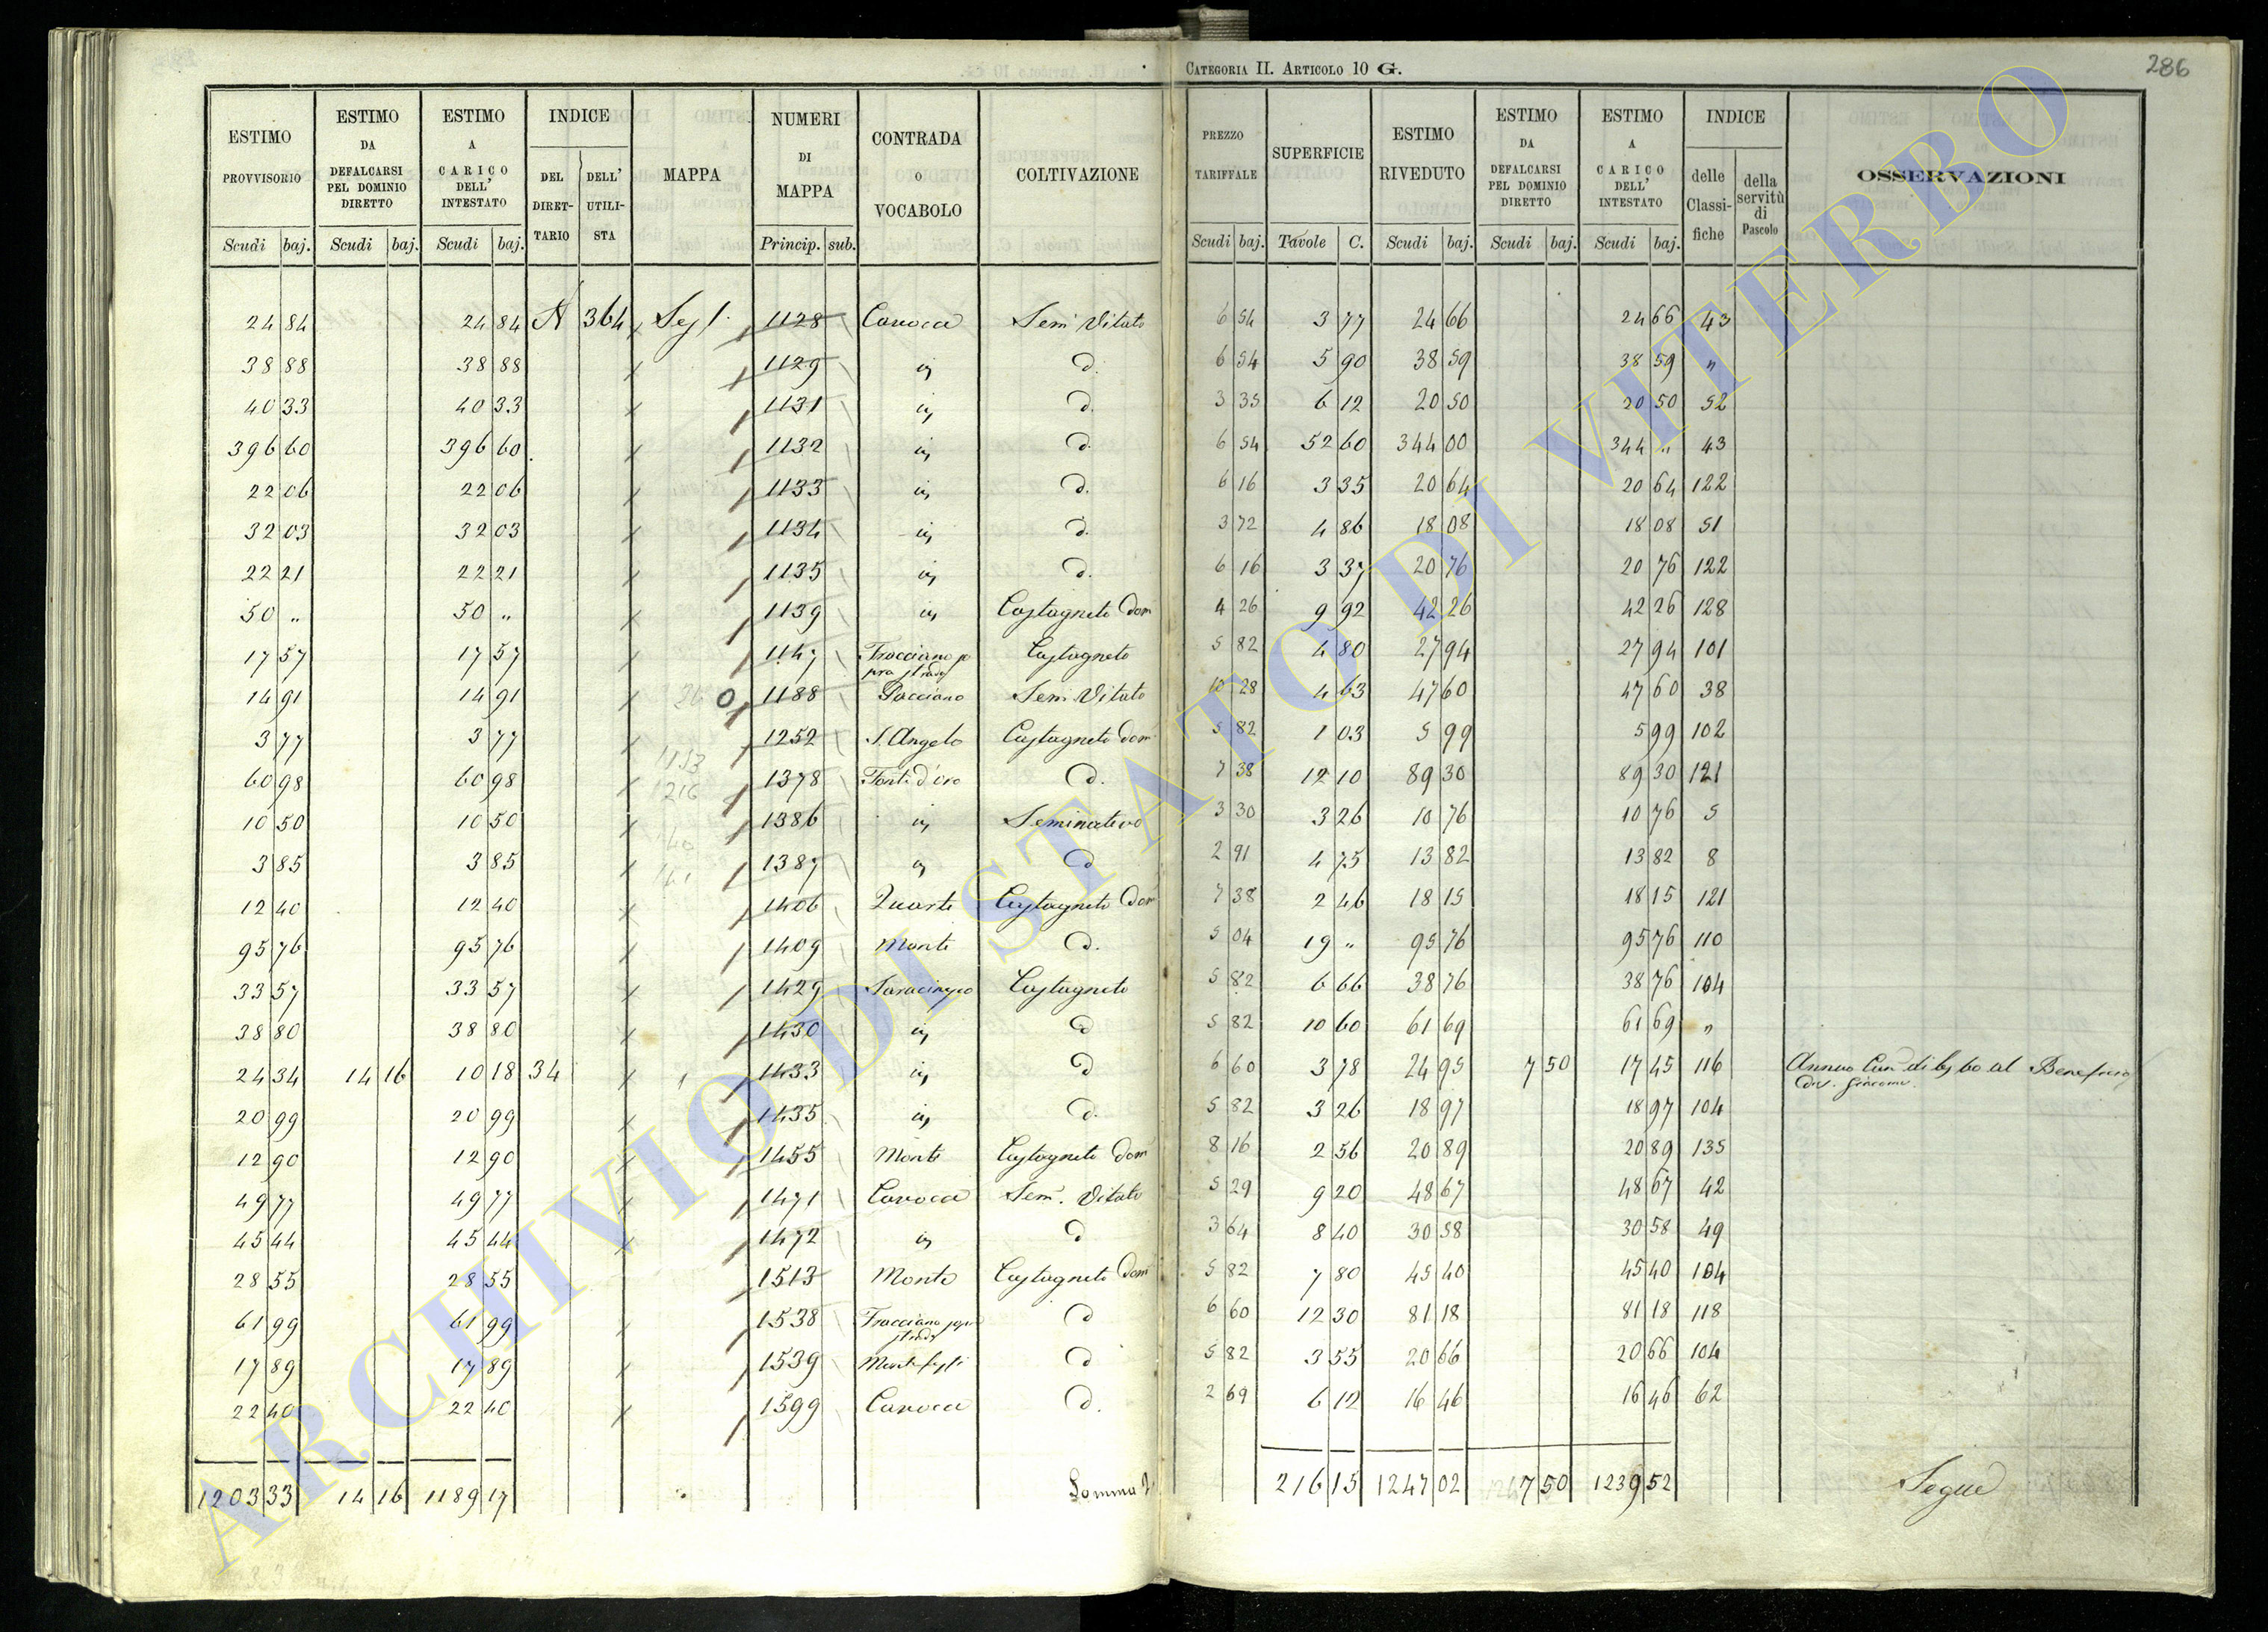 CATEGORIA II. ARTICOLO 10 G.
286
ESTIMO PROVVISORIO Scudi baj. | ESTIMO DA DEFALCARSI PEL DOMINIO DIRETTO Scudi baj. | ESTIMO A CARICO DELL' INTESTATO Scudi baj. | INDICE DEL DIRETTARIO | DELL' UTILISTA | MAPPA | NUMERI DI MAPPA Princip. sub. | CONTRADA O VOCABOLO | COLTIVAZIONE | PREZZO TARIFFALE Scudi baj. | SUPERFICIE Tavole C. | ESTIMO RIVEDUTO Scudi baj. | ESTIMO DA DEFALCARSI PEL DOMINIO DIRETTO Scudi baj. | ESTIMO A CARICO DELL' INTESTATO Scudi baj. | INDICE delle Classifiche | della servitù di Pascolo | OSSERVAZIONI
24 84 24 84 A 364 1128 Cavoca Sem Vitato 6 54 3 77 24 66 24 66 43
38 88 38 88 1129 d. 6 54 5 90 38 59 38 59 "
40 33 40 33 1131 d. 3 35 6 12 20 50 20 50 52
396 60 396 60 1132 d. 6 54 52 60 344 00 344 " 43
22 06 22 06 1133 d. 6 16 3 35 20 64 20 64 122
32 03 32 03 1134 d. 3 72 4 86 18 08 18 08 51
22 21 22 21 1135 d. 6 16 3 37 20 76 20 76 122
50 " 50 " 1139 Castagneto Dom 4 26 9 92 42 26 42 26 128
17 57 17 57 1147 Castagneto 5 82 4 80 27 94 27 94 101
14 91 14 91 0 1188 Pacciano Sem Vitato 10 28 4 63 47 60 47 60 38
3 77 3 77 1252 S. Angelo Castagneto Dom 5 82 1 03 5 99 5 99 102
60 98 60 98 1216 1378 Fonte d'oro d. 7 38 12 10 89 30 89 30 121
10 50 10 50 1386 Seminativo 3 30 3 26 10 76 10 76 5
3 85 3 85 1387 d 2 91 4 75 13 82 13 82 8
12 40 12 40 1406 Quarto Castagneto Dom 7 38 2 46 18 15 18 15 121
95 76 95 76 1409 Monte d. 5 04 19 " 95 76 95 76 110
33 57 33 57 1429 Castagneto 5 82 6 66 38 76 38 76 104
38 80 38 80 1430 d 5 82 10 60 61 69 61 69 "
24 34 14 16 10 18 34 1433 d 6 60 3 78 24 95 7 50 17 45 116 Annuo Can di al Beneficio
di S. Giacomo
20 99 20 99 1435 d. 5 82 3 26 18 97 18 97 104
12 90 12 90 1455 Monte Castagneto Dom 8 16 2 56 20 89 20 89 135
49 77 49 77 1471 Cavoca Sem. Vitato 5 29 9 20 48 67 48 67 42
45 44 45 44 1472 d 3 64 8 40 30 58 30 58 49
28 55 28 55 1513 Monte Castagneto Dom 5 82 7 80 45 40 45 40 104
61 99 61 99 1538 d 6 60 12 30 81 18 81 18 118
17 89 17 89 1539 d 5 82 3 55 20 66 20 66 104
22 40 22 40 1599 Cavoca d. 2 69 6 12 16 46 16 46 62
1203 33 14 16 1189 17 Somma 216 15 1247 02 7 50 1239 52 Segue
ARCHIVIO DI STATO DI VITERBO